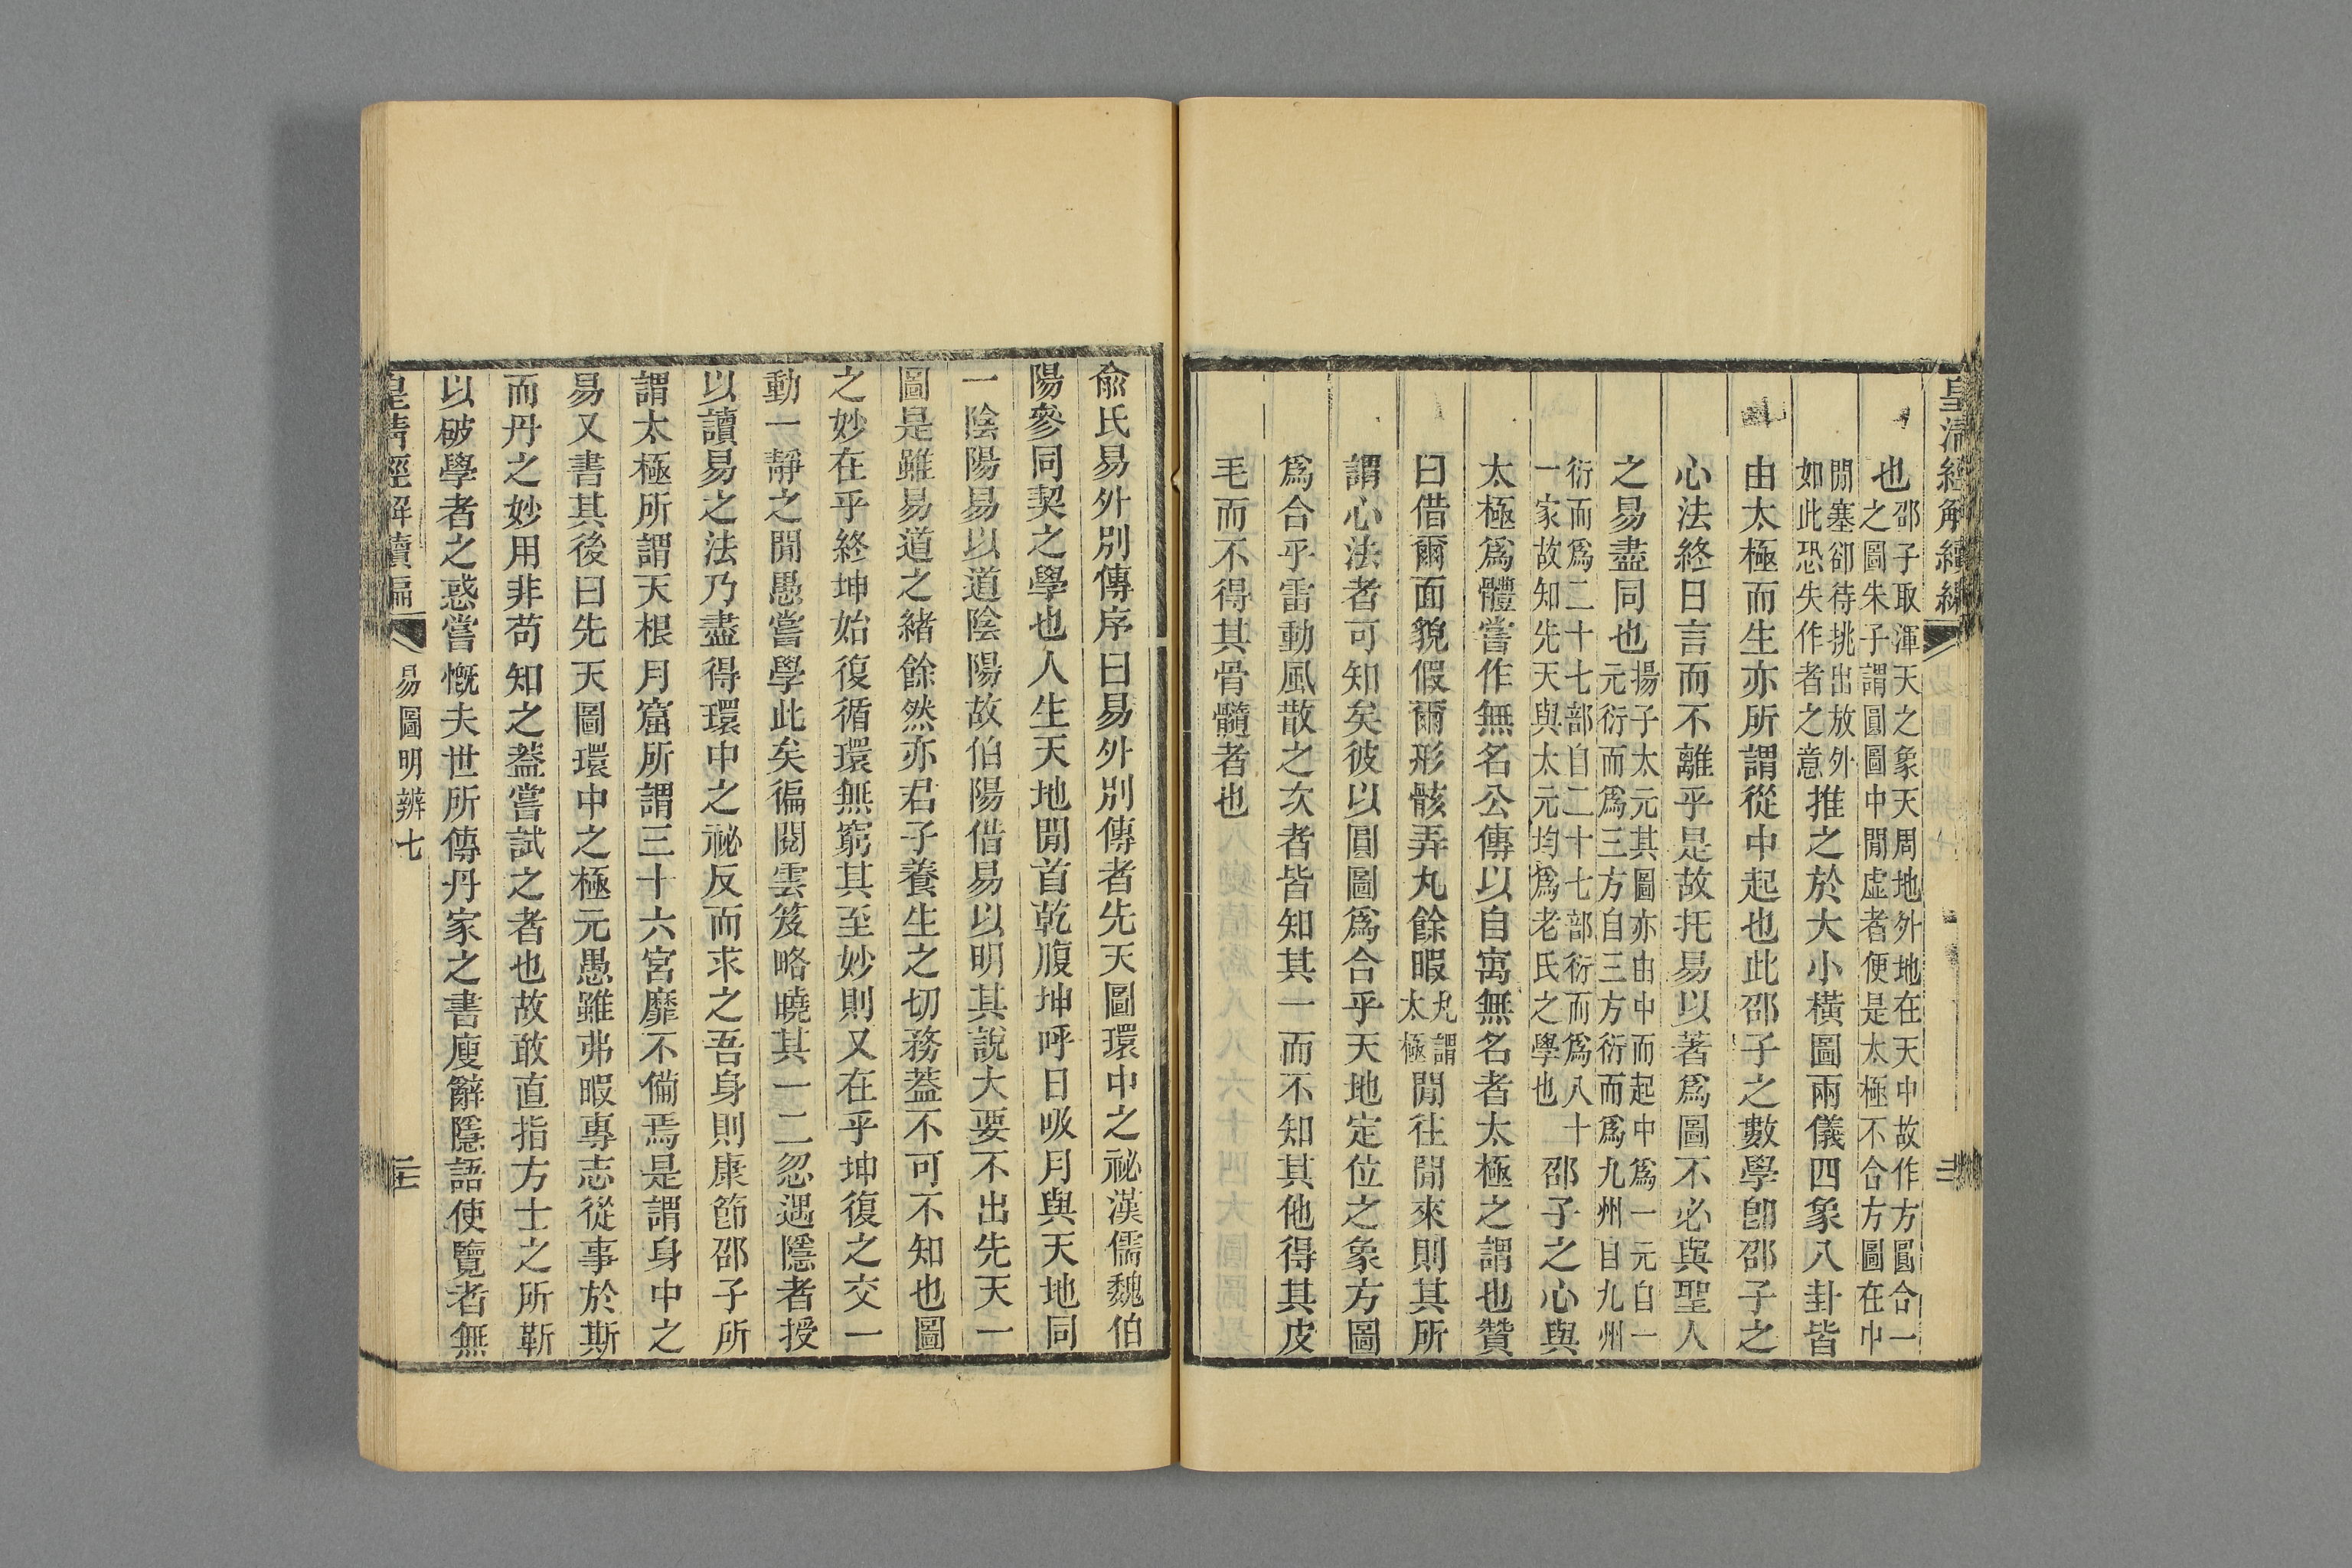 皇清經解續編
也邵子取渾天之象天周地外地在天中故作方圓合一
之圖朱子謂圓圖中閒虛者便是太極不合方圖在中
閒塞卻待挑出放外
如此恐失作者之意推之於大小橫圖兩儀四象八卦皆
由太極而生亦所謂從中起也此邵子之數學卽邵子之
心法終日言而不離乎是故托易以著爲圖不必與聖人
之易盡同也揚子太元其圖亦由中而起中爲一元自一
元衍而爲三方自三方衍而爲九州自九州
衍而爲二十七部自二十七部衍而爲八十
一家故知先天與太元均爲老氏之學也邵子之心與
太極爲體嘗作無名公傳以自寓無名者太極之謂也贊
曰借爾面貌假爾形骸弄丸餘暇丸謂太極閒往閒來則其所
謂心法者可知矣彼以圓圖爲合乎天地定位之象方圖
爲合乎雷動風散之次者皆知其一而不知其他得其皮
毛而不得其骨髓者也
俞氏易外別傳序曰易外別傳者先天圖環中之祕漢儒魏伯
陽參同契之學也人生天地閒首乾腹坤呼日吸月與天地同
一陰陽易以道陰陽故伯陽借易以明其說大要不出先天一
圖是雖易道之緒餘然亦君子養生之切務蓋不可不知也圖
之妙在乎終坤始復循環無窮其至妙則又在乎坤復之交一
動一靜之閒愚嘗學此矣徧閱雲笈略曉其一二忽遇隱者授
以讀易之法乃盡得環中之祕反而求之吾身則康節邵子所
謂太極所謂天根月窟所謂三十六宮靡不備焉是謂身中之
易又書其後曰先天圖環中之極元愚雖弗暇專志從事於斯
而丹之妙用非苟知之蓋嘗試之者也故敢直指方士之所靳
以破學者之惑嘗慨夫世所傳丹家之書廋辭隱語使覽者無
皇清經解續編
易圖明辨七